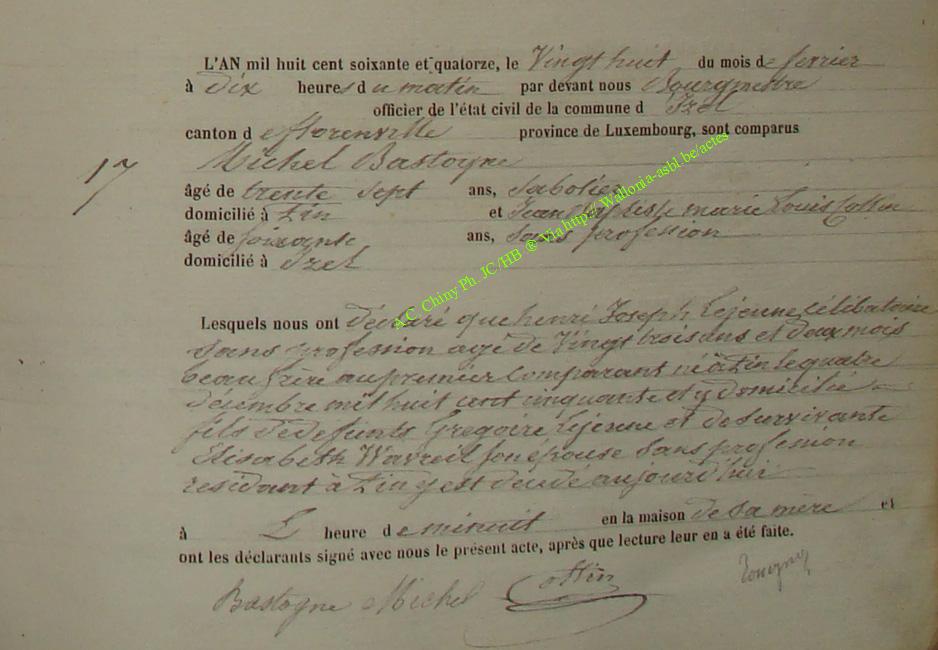 L'AN mil huit cent soixante et quatorze, le Vingt huit du mois de fevrier
à Dix heures du matin par devant nous Bourgmestre
officier de l'état civil de la commune d Izel
canton de florenville province de Luxembourg, sont comparus
17 Michel Bastogne
âgé de trente sept ans, Sabotier
domicilié à Pin et Jean Baptiste marie Louis Cottin
âgé de soixante ans, Sans profession
domicilié à Izel
A.C. Chiny Ph. JC/HB @ Via https://Wallonia-asbl.be/actes
Lesquels nous ont déclaré que henri Joseph Lejeune célibataire
Sans profession agé de Vingt trois ans et deux mois
beau frère au premier Comparant né à Pin le quatre
décembre mil huit cent cinquante et y domicilié
fils de defunts Gregoire Lejeune et de Survivante
Elisabeth son épouse Sans profession
residant à Pin y est décédé aujourd'hui
à L heure de minuit en la maison de Sa mère et
ont les déclarants signé avec nous le présent acte, après que lecture leur en a été faite.
Bastogne Michel Cottin